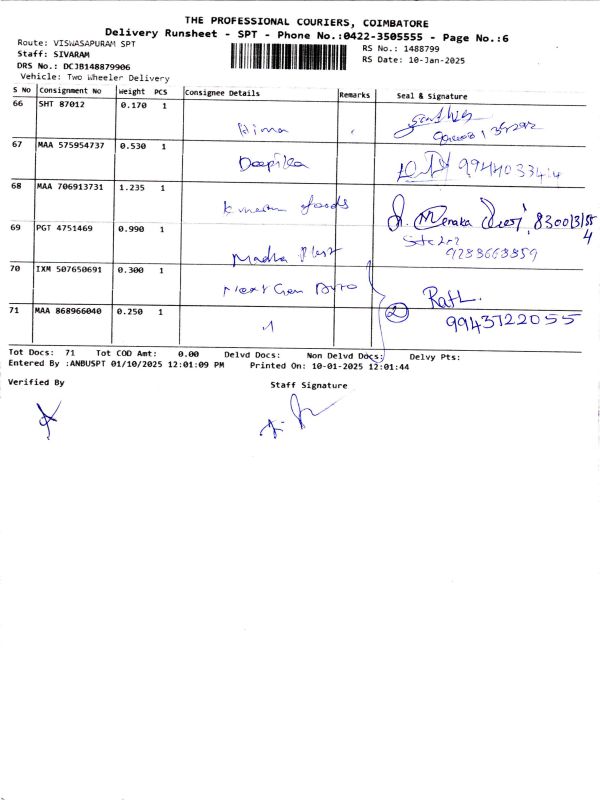 THE PROFESSIONAL COURIERS, COIMBATORE
Delivery Runsheet - SPT - Phone No.:0422-3505555 - Page No.:6
Route: VISWASAPURAM SPT
RS No.: 1488799
Staff: SIVARAM
RS Date: 10-Jan-2025
DRS No.: DCJB148879906
Vehicle: Two Wheeler Delivery
S No Consignment No Weight PCS Consignee Details Remarks Seal & Signature
66 SHT 87012 0.170 1
Hima
67 MAA 575954737 0.530 1
Deepika
68 MAA 706913731 1.235 1
foods
Menaka Devi, 8300131554
69 PGT 4751469 0.990 1
9283668859
Madha Plast
70 IXM 507650691 0.300 1
Next Gen
2
71 MAA 868966040 0.250 1
9943722055
Tot Docs: 71 Tot COD Amt: 0.00 Delvd Docs: Non Delvd Docs: Delvy Pts:
Entered By :ANBUSPT 01/10/2025 12:01:09 PM Printed On: 10-01-2025 12:01:44
Verified By
Staff Signature